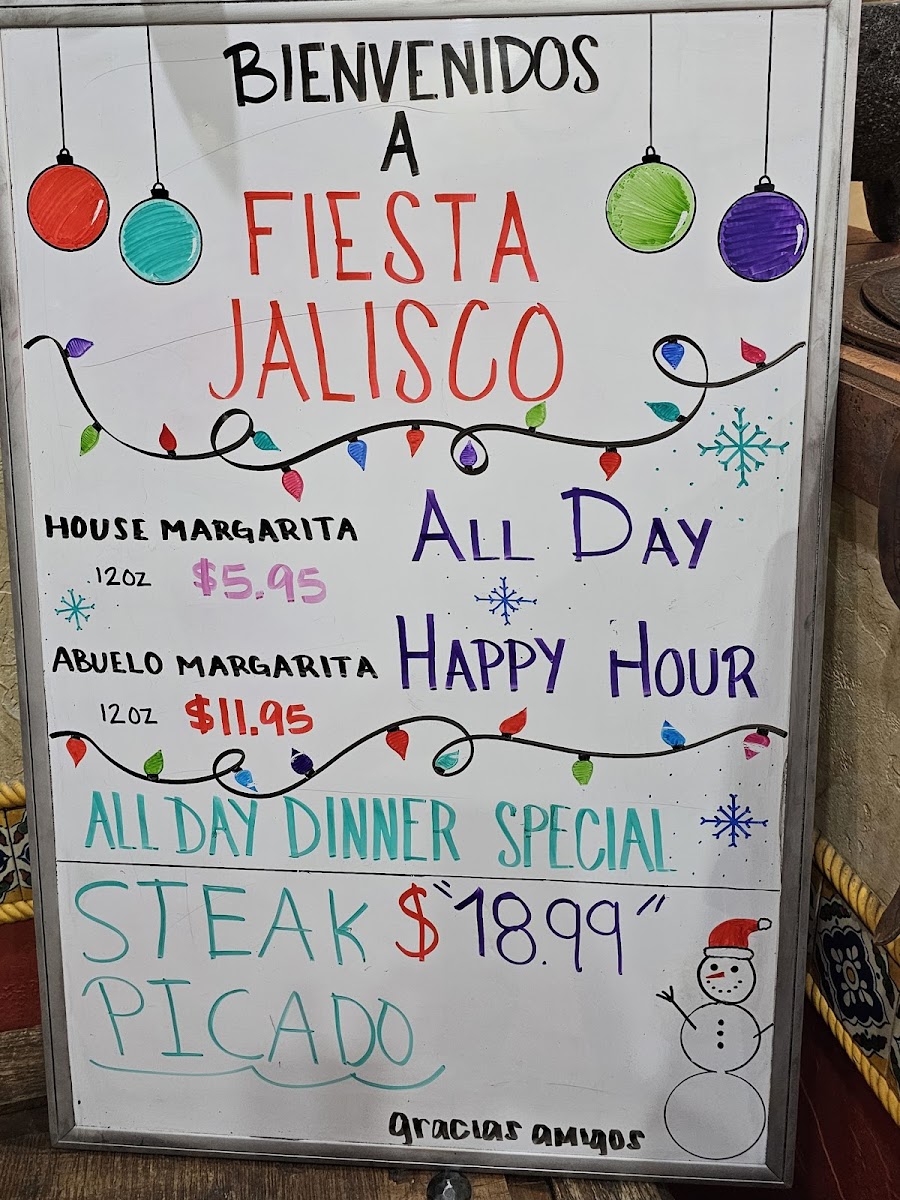 BIENVENIDOS
A
FIESTA
JALISCO
HOUSE MARGARITA
12OZ $5.95
ABUELO MARGARITA
12OZ $11.95
ALL DAY
HAPPY HOUR
ALL DAY DINNER SPECIAL
STEAK $"18.99"
PICADO
gracias amigos